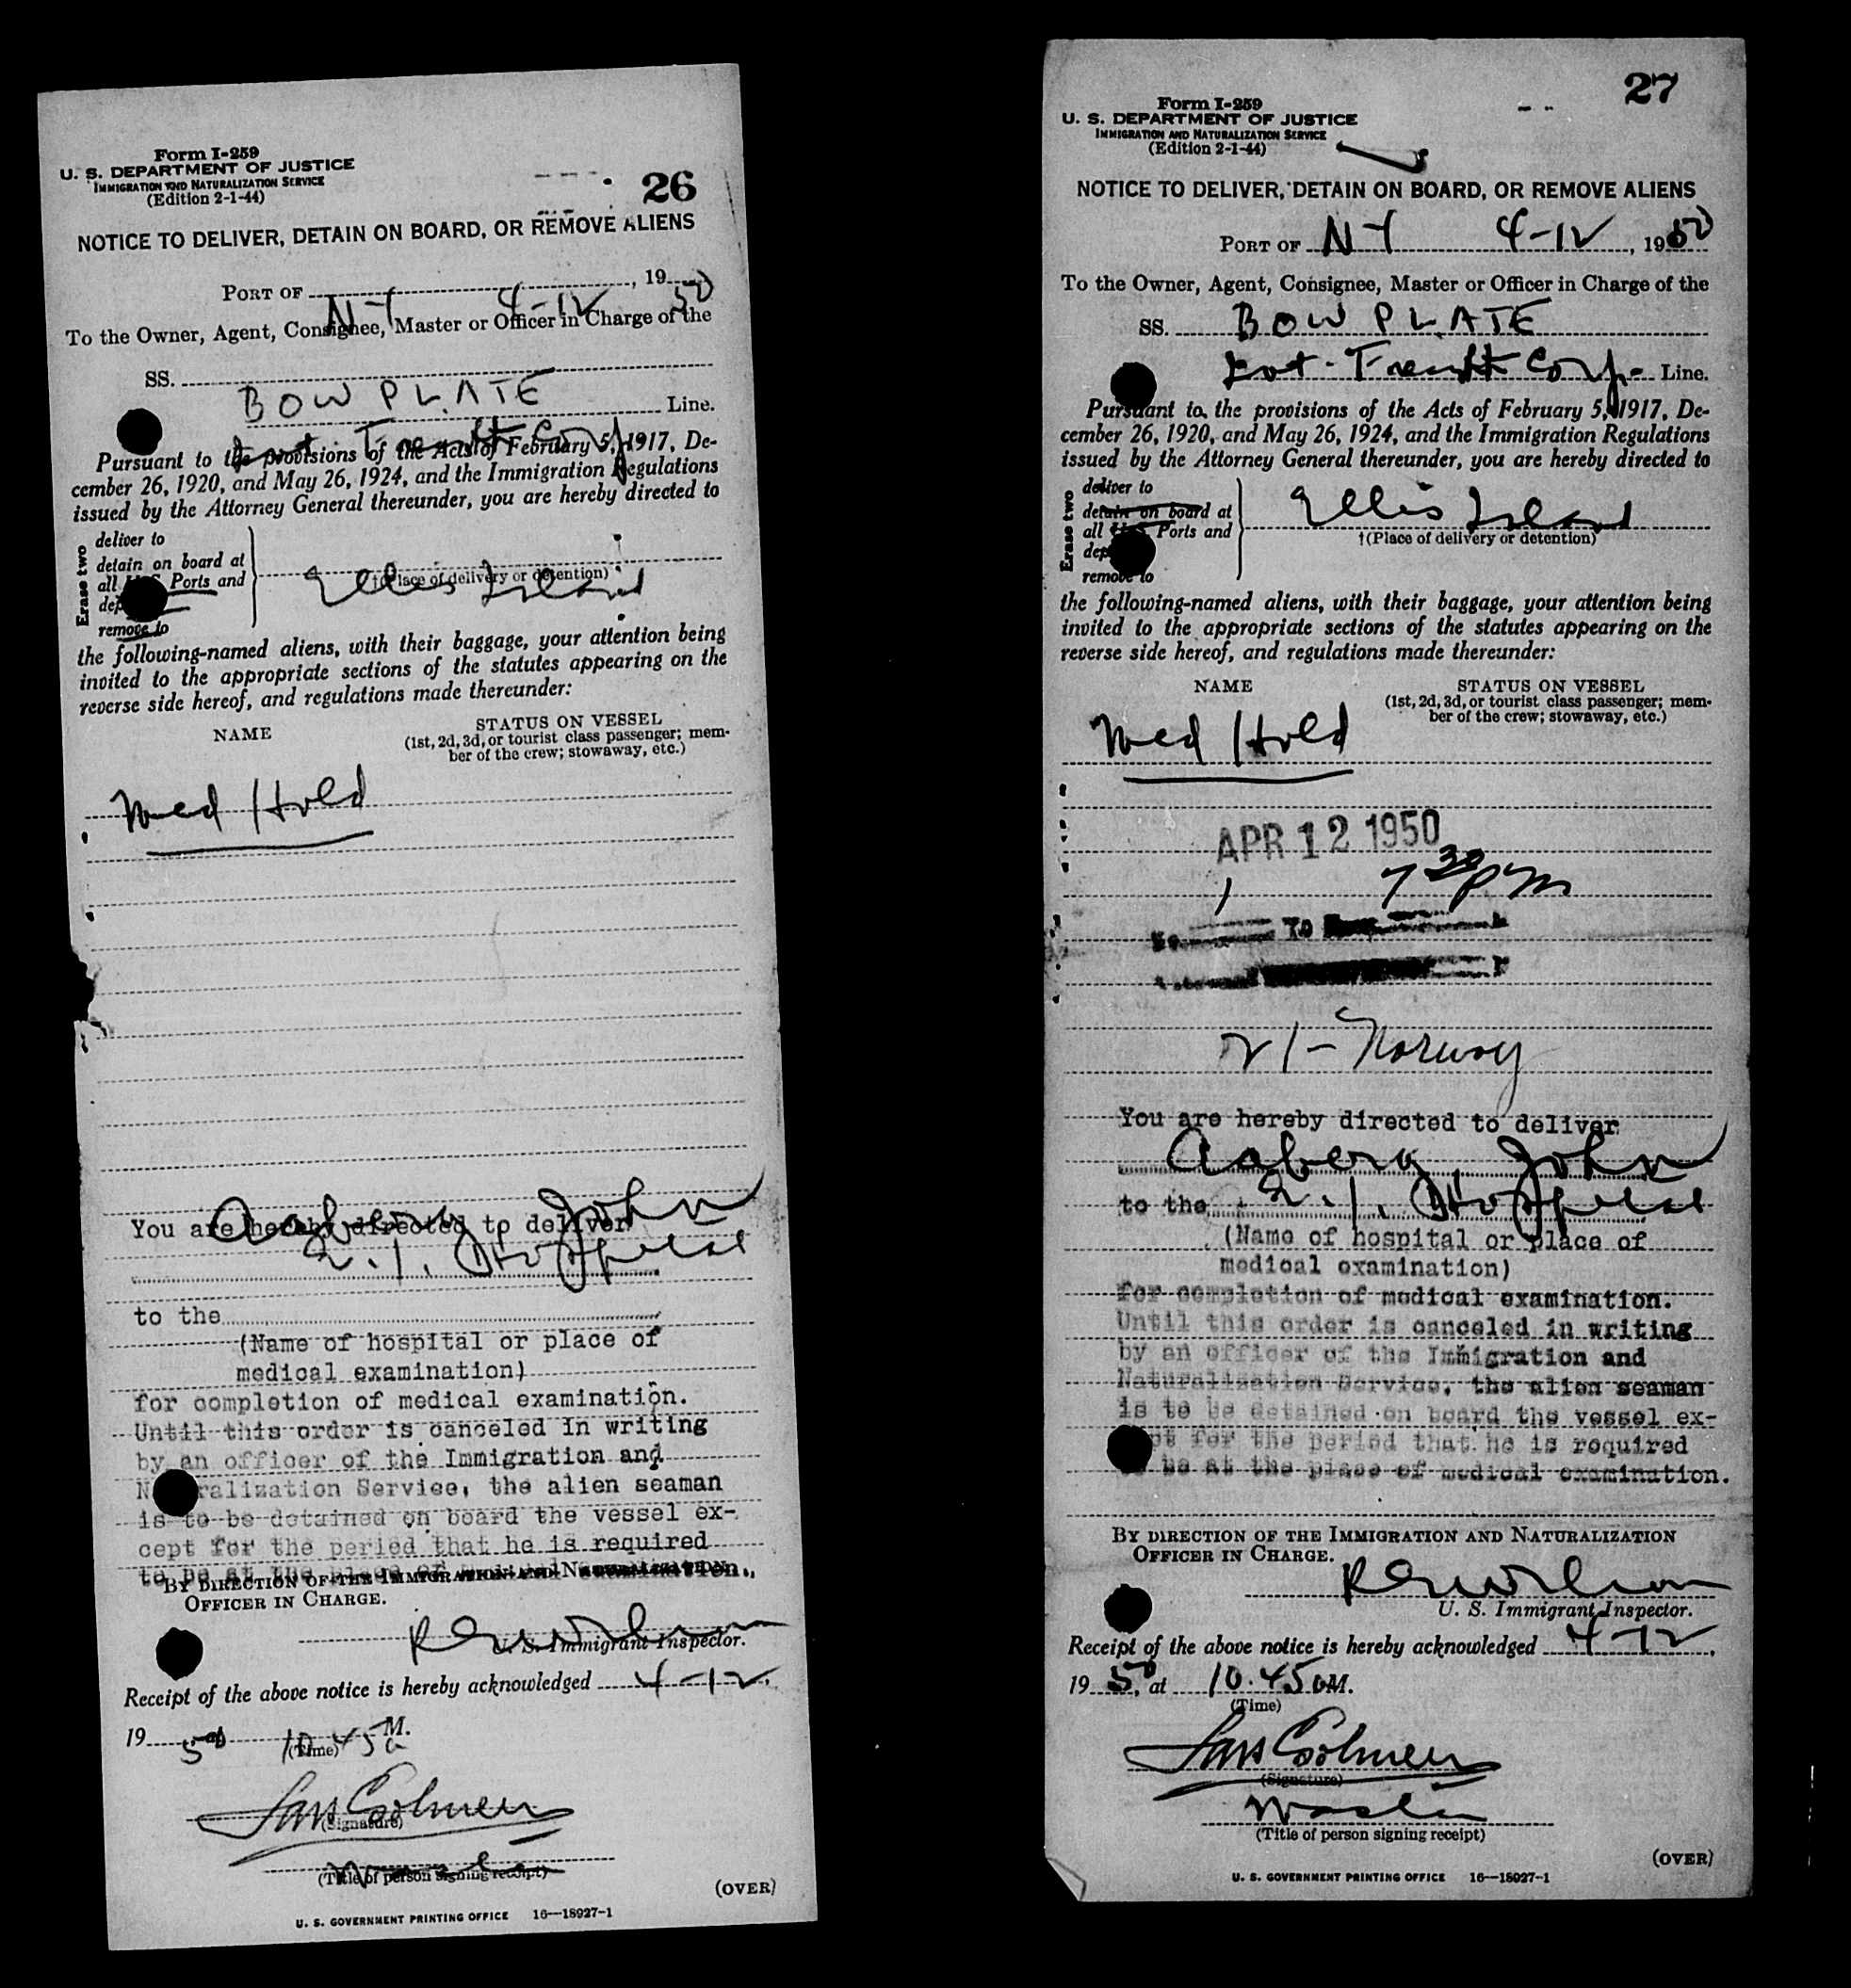 Form I-259
U. S. DEPARTMENT OF JUSTICE
IMMIGRATION AND NATURALIZATION SERVICE
(Edition 2-1-44)
26
NOTICE TO DELIVER, DETAIN ON BOARD, OR REMOVE ALIENS
PORT OF N-Y 4-12, 1950
To the Owner, Agent, Consignee, Master or Officer in Charge of the
SS. BOW PLATE
Corp Line.
Pursuant to the provisions of the Acts of February 5, 1917, De-
cember 26, 1920, and May 26, 1924, and the Immigration Regulations
issued by the Attorney General thereunder, you are hereby directed to
Erase two
deliver to
detain on board at
all U.S. Ports and
remove to
Ellis Island
†(Place of delivery or detention)
the following-named aliens, with their baggage, your attention being
invited to the appropriate sections of the statutes appearing on the
reverse side hereof, and regulations made thereunder:
NAME
STATUS ON VESSEL
(1st, 2d, 3d, or tourist class passenger; mem-
ber of the crew; stowaway, etc.)
Med Hold
You are hereby directed to deliver
Aaberg, John
to the E. I. Hospital
(Name of hospital or place of
medical examination)
for completion of medical examination.
Until this order is canceled in writing
by an officer of the Immigration and
Naturalization Service, the alien seaman
is to be detained on board the vessel ex-
cept for the period that he is required
to be at the place of medical examination.
BY DIRECTION OF THE IMMIGRATION AND NATURALIZATION
OFFICER IN CHARGE.
U. S. Immigrant Inspector.
Receipt of the above notice is hereby acknowledged 4-12,
1950, at 10.45 a M.
(Time)
(Signature)
Master
(Title of person signing receipt)
(OVER)
U. S. GOVERNMENT PRINTING OFFICE 16—18927-1
27
Form I-259
U. S. DEPARTMENT OF JUSTICE
IMMIGRATION AND NATURALIZATION SERVICE
(Edition 2-1-44)
NOTICE TO DELIVER, DETAIN ON BOARD, OR REMOVE ALIENS
PORT OF N-Y 4-12, 1950
To the Owner, Agent, Consignee, Master or Officer in Charge of the
SS. BOW PLATE
Corp- Line.
Pursuant to the provisions of the Acts of February 5, 1917, De-
cember 26, 1920, and May 26, 1924, and the Immigration Regulations
issued by the Attorney General thereunder, you are hereby directed to
Erase two
deliver to
detain on board at
all U.S. Ports and
remove to
Ellis Island
†(Place of delivery or detention)
the following-named aliens, with their baggage, your attention being
invited to the appropriate sections of the statutes appearing on the
reverse side hereof, and regulations made thereunder:
NAME
STATUS ON VESSEL
(1st, 2d, 3d, or tourist class passenger; mem-
ber of the crew; stowaway, etc.)
Med Hold
APR 12 1950
7 30 pm
TO
21 - Norway
You are hereby directed to deliver
Aaberg, John
to the E. I. Hospital
(Name of hospital or place of
medical examination)
for completion of medical examination.
Until this order is canceled in writing
by an officer of the Immigration and
Naturalization Service, the alien seaman
is to be detained on board the vessel ex-
cept for the period that he is required
to be at the place of medical examination.
BY DIRECTION OF THE IMMIGRATION AND NATURALIZATION
OFFICER IN CHARGE.
U. S. Immigrant Inspector.
Receipt of the above notice is hereby acknowledged 4-12,
1950, at 10.45 a M.
(Time)
(Signature)
Master
(Title of person signing receipt)
(OVER)
U. S. GOVERNMENT PRINTING OFFICE 16—18927-1